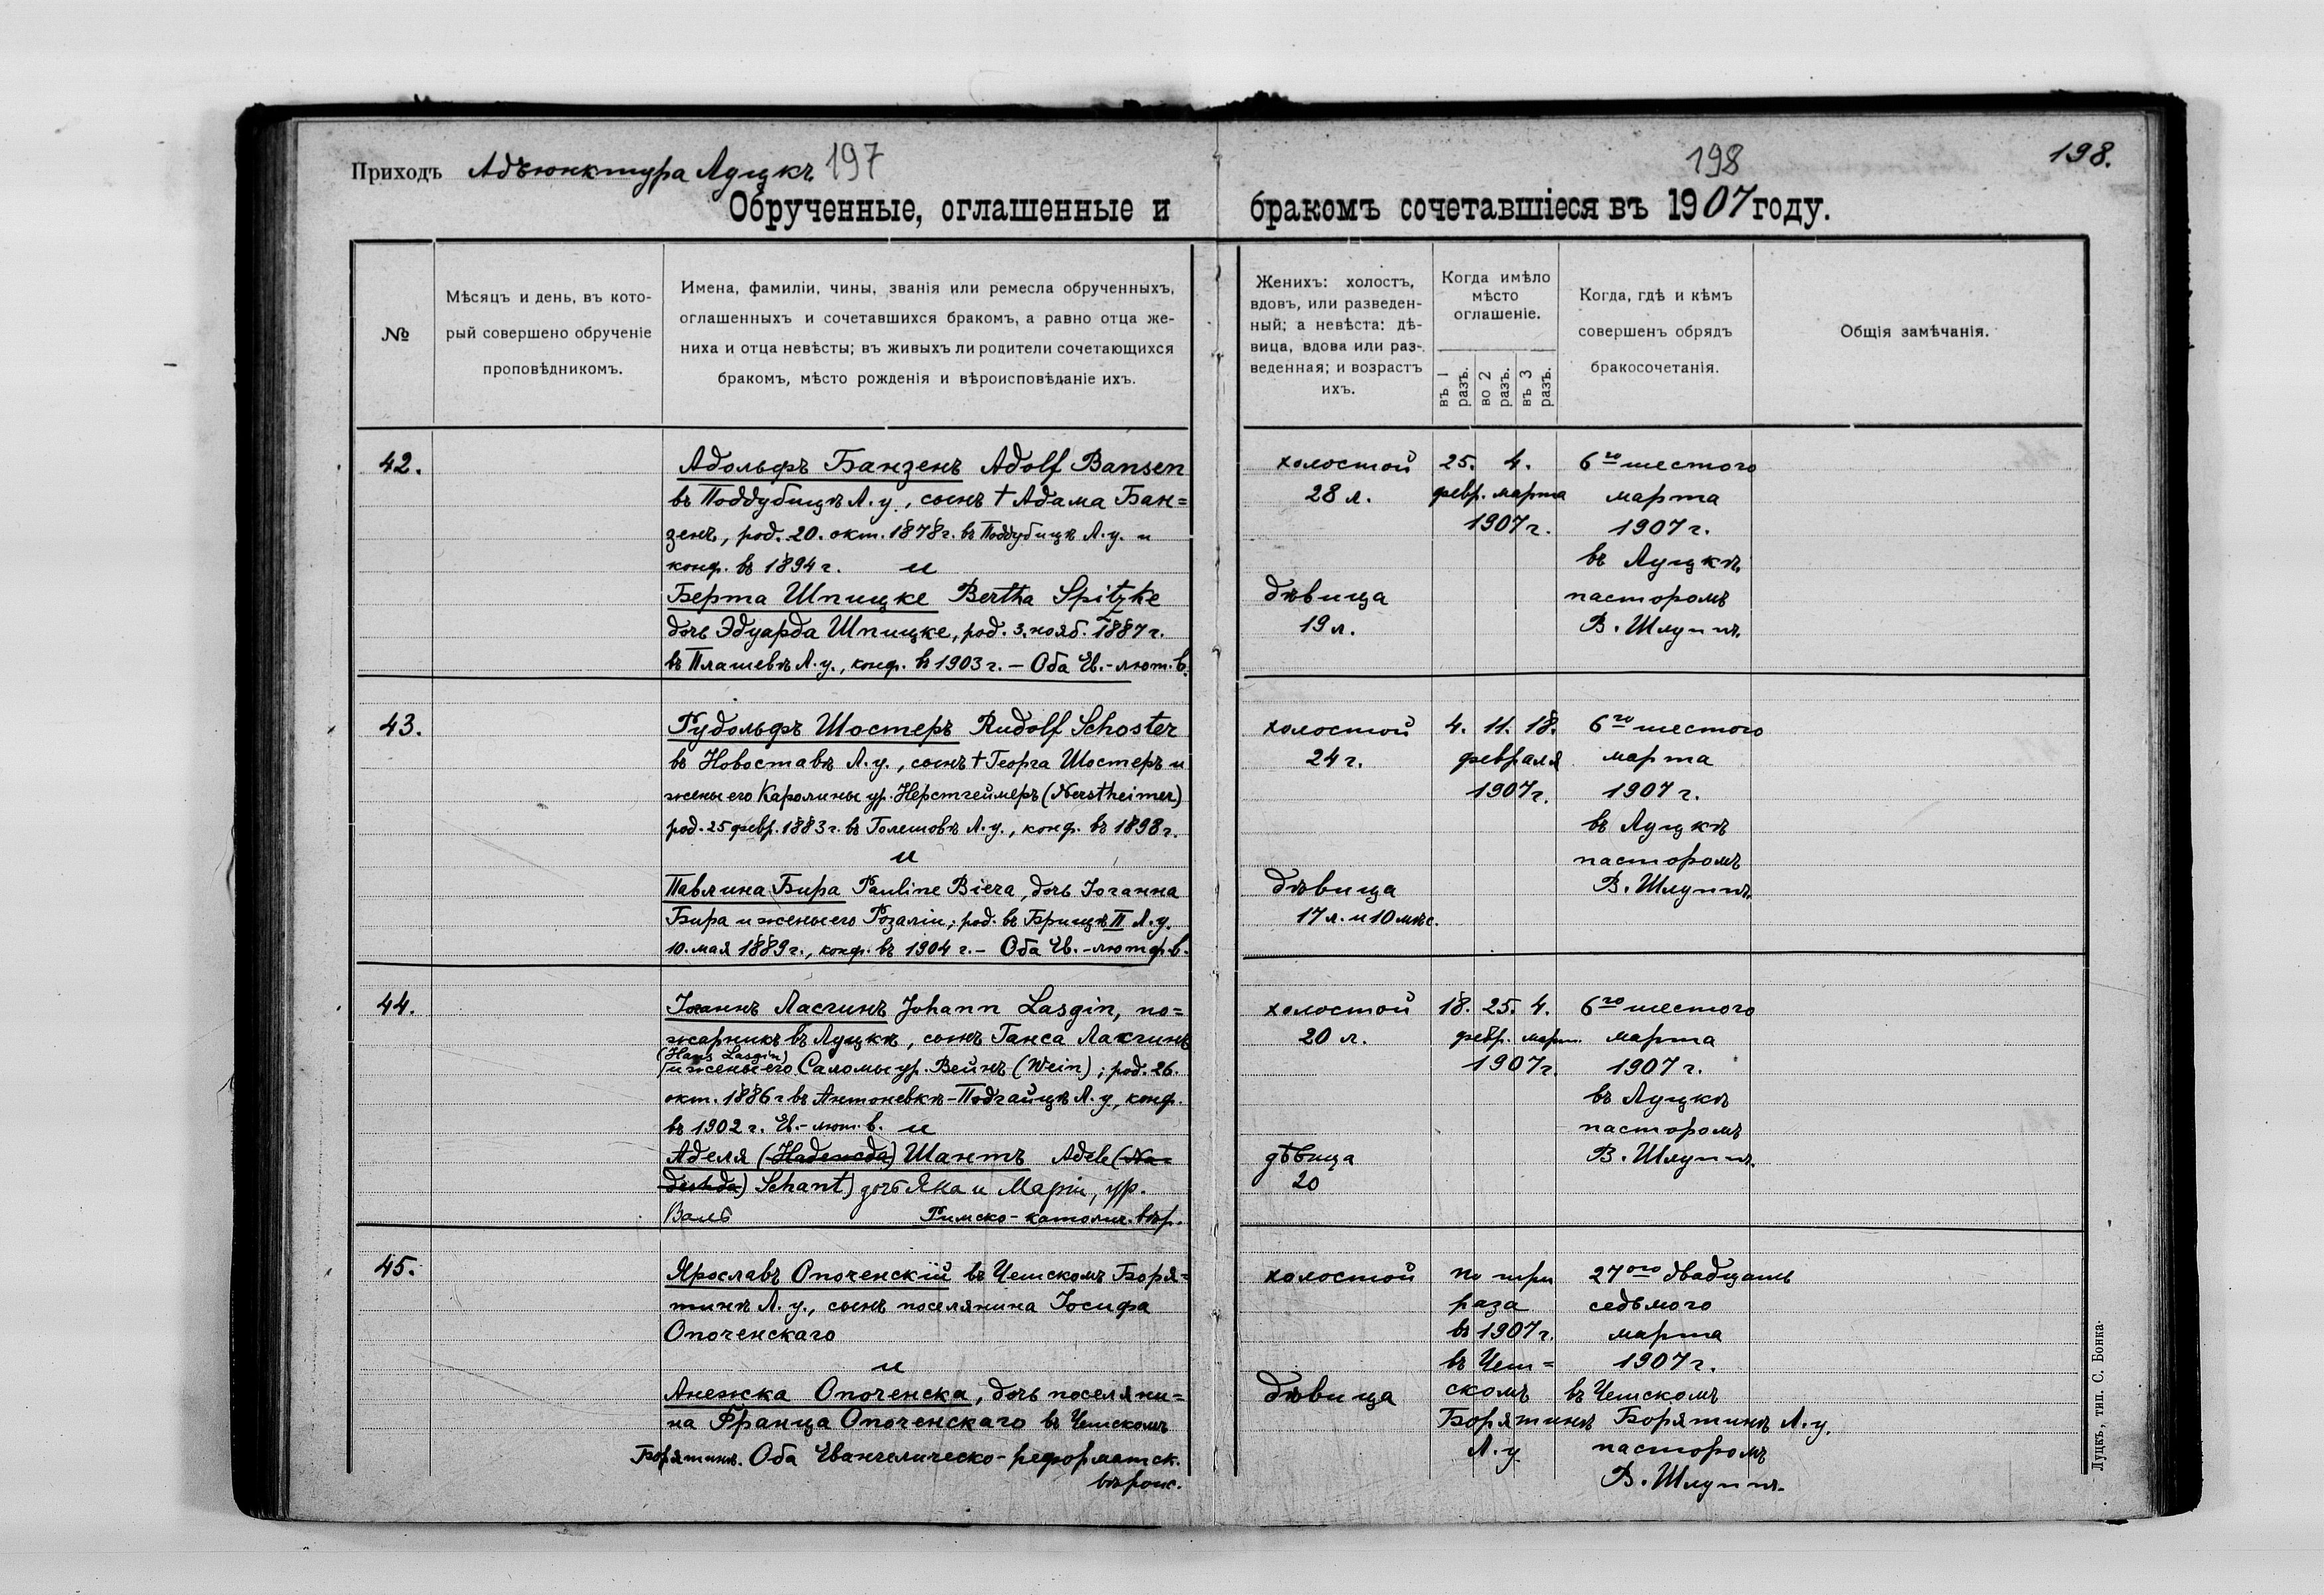 Приходъ Адъюнктура Луцкъ 197
198
198.
Обрученные, оглашенные и бракомъ сочетавшіеся въ 1907 году.
№
Мѣсяцъ и день, въ кото-
рый совершено обрученіе
проповѣдникомъ.
Имена, фамиліи, чины, званія или ремесла обрученныхъ,
оглашенныхъ и сочетавшихся бракомъ, а равно отца же-
ниха и отца невѣсты; въ живыхъ ли родители сочетающихся
бракомъ, мѣсто рожденія и вѣроисповѣданіе ихъ.
Женихъ: холостъ,
вдовъ, или разведен-
ный; а невѣста: дѣ-
вица, вдова или раз-
веденная; и возрастъ
ихъ.
Когда имѣло
мѣсто
оглашеніе.
въ 1 разъ.
во 2 разъ.
въ 3 разъ.
Когда, гдѣ и кѣмъ
совершенъ обрядъ
бракосочетанія.
Общія замѣчанія.
42.
Адольфъ Банзенъ Adolf Bansen
въ Поддубицѣ Л. у., сынъ † Адама Бан=
зенъ, род. 20. окт. 1878 г. въ Поддубицѣ Л. у. и
конф. въ 1894 г. и
Берта Шпицке Bertha Spitzke
дочь Эдуарда Шпицке, род. 3. нояб. 1887 г.
въ Плашевѣ Л. у., конф. въ 1903 г. – Оба Ев.-лют. в.
холостой
28 л.
дѣвица
19 л.
25. 4.
февр. марта
1907 г.
6го шестого
марта
1907 г.
въ Луцкѣ
пасторомъ
В. Шлуппъ.
43.
Рудольфъ Шостеръ Rudolf Schoster
въ Новоставѣ Л. у., сынъ † Георга Шостеръ и
жены его Каролины ур. Нерстгеймеръ (Nerstheimer)
род. 25 февр. 1883 г. въ Голешовѣ Л. у., конф. въ 1898 г.
и
Павлина Бира Pauline Biera, дочь Іоганна
Бира и жены его Розаліи; род. въ Брищѣ II Л. у.
10. мая 1889 г., конф. въ 1904 г. – Оба Ев.-лютер. в.
холостой
24 г.
дѣвица
17 л. и 10 мѣс.
4. 11. 18.
февраля
1907 г.
6го шестого
марта
1907 г.
въ Луцкѣ
пасторомъ
В. Шлуппъ.
44.
Іоаннъ Ласгинъ Johann Lasgin, по=
жарникъ въ Луцкѣ, сынъ Ганса Ласгинъ
(Hans Lasgin)
и жены его Саломы ур. Вейнъ (Wein); род. 26.
окт. 1886 г. въ Антоневкѣ-Подгайцѣ Л. у., конф.
въ 1902 г. Ев.-лют. в. и
Аделя (Надежда) Шантъ Adele (Na-
deshda) Schant) дочь Яна и Маріи, ур.
Валь Римско-католич. вѣр.
холостой
20 л.
дѣвица
20
18. 25. 4.
февр. март.
1907 г.
6го шестого
марта
1907 г.
въ Луцкѣ
пасторомъ
В. Шлуппъ.
45.
Ярославъ Опоченскій въ Чешскомъ Боря=
тинѣ Л. у., сынъ поселянина Іосифа
Опоченскаго
и
Анежка Опоченска, дочь поселяни=
на Франца Опоченскаго въ Чешскомъ
Борятинѣ. Оба Евангелическо-реформатск.
вѣроис.
холостой
дѣвица
по три
раза
въ 1907 г.
въ Чеш=
скомъ
Борятинѣ
Л. у.
27ого двадцать
седьмого
марта
1907 г.
въ Чешскомъ
Борятинѣ Л. у.
пасторомъ
В. Шлуппъ.
Луцкъ, тип. С. Бонка.